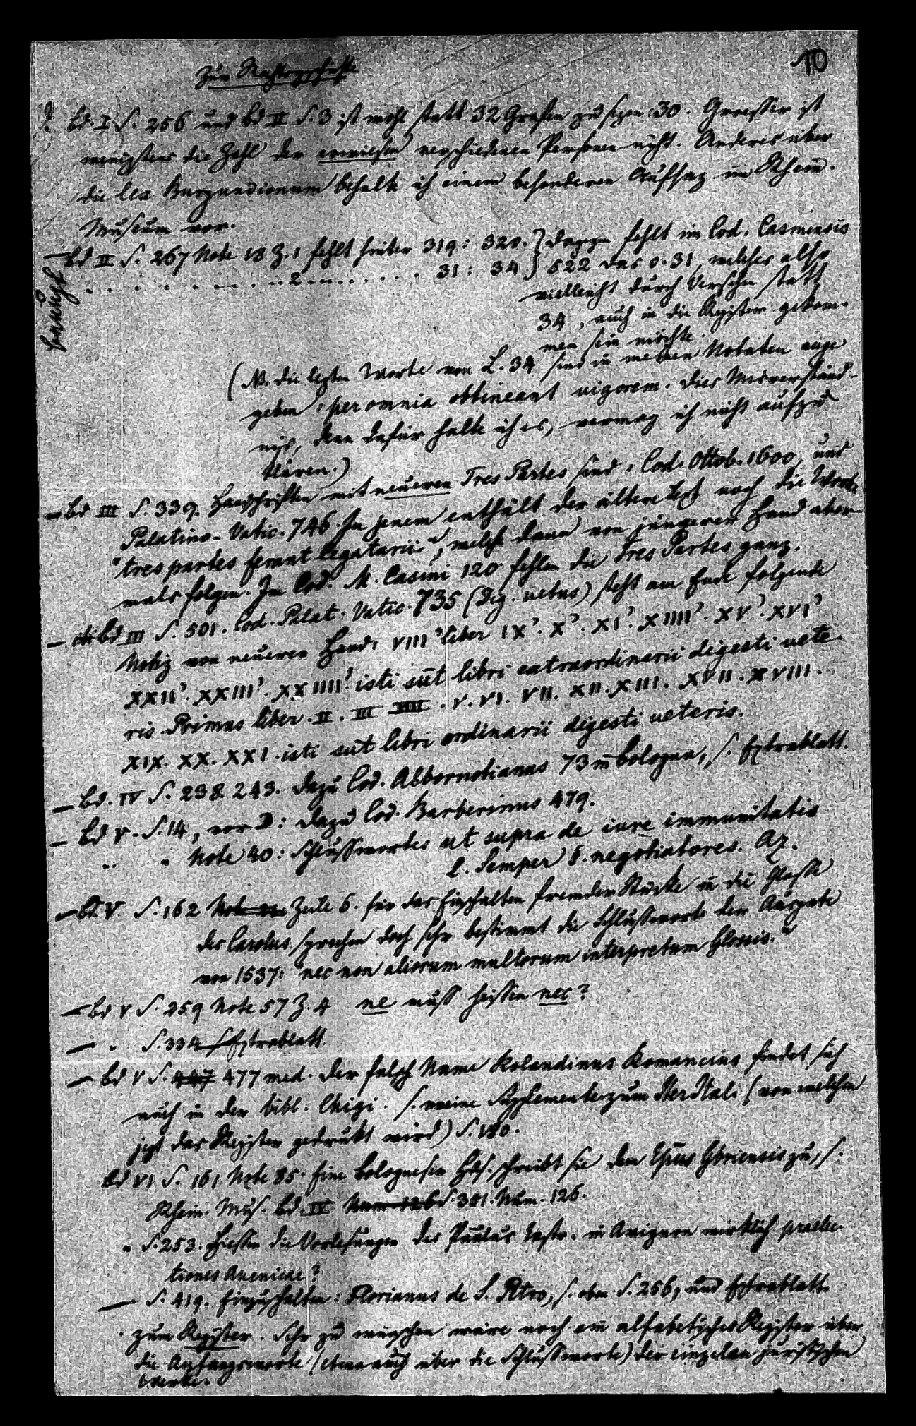 10
Zur Rechtsgeschichte
Bd I S. 266 und Bd II S. 3 ist wohl statt 32 Grafen zu setzen: 30. Groesser ist
wenigstens die Zahl der erwiesen verschiedenen Personen nicht. Anderes über
die lex Burgundionum behalte ich einem besonderen Aufsaz im Rhein.
Museum vor.
Bd II S. 267 Note 18 Z. 1 fehlt hinter 319: 320. } dagegen fehlt im Cod. Casinensis
2 31: 34 } 522 das c. 31, welches also
vielleicht durch Versehn statt
34, auch in die Register gekom-
men sein möchte.
(N. die lezten Worte von L. 34 sind in meinen Notaten ange
geben: per omnia obtineant vigorem. Dies Misverständ-
nis, denn dafür halte ich es, vermag ich nicht aufzu
klären.)
Bd III S. 339. Handschriften mit neueren Tres Partes sind: Cod. Ottob. 1600, und
Palatino-Vatic. 746. In jenem enthält der ältere Text noch die Worte
"tres partes ferant legatarii", welche dann von jüngerer Hand aber-
mals folgen. In Cod. M. Casini 120 fehlen die Tres Partes ganz.
Bd III S. 501. Cod. Palat. Vatic. 735 (Dig. vetus) steht am Ende folgende
Notiz von neuerer Hand: VIII liber IX. X. XI. XIIII. XV. XVI
XXII. XXIII. XXIIII. isti sūt libri extraordinarii digesti vete
ris Primus liber. II. III. IIII. V. VI. VII. XII. XIII. XVII. XVIII.
XIX. XX. XXI. isti sūt libri ordinarii digesti veteris.
Bd. IV S. 238. 243. dazu Cod. Albornotianus 73 in Bologna, s. Extrablatt.
Bd V. S. 14, vor D: dazu Cod. Barberinus 479.
" " Note 40: Schlussworte ut supra de iure immunitatis
l. Semper §. negotiatores. Az.
Bd. V S. 162 Zeile 6. für das Einschalten fremder Stücke in die Glosse
des Carolus sprechen doch sehr bestimmt die Schlussworte der Ausgabe
von 1537: "nec non aliorum multorum interpretum glossis."
Bd V S. 259 Note 57 Z. 4 ne muss heissen nec?
" S. 334 s. Extrablatt.
Bd V S. 477 med. Der falsche Name Rolandinus Romancius findet sich
auch in der bibl. Chigi. s. meine Supplemente zum Iter Ital. (von welchem
jezt das Register gedrukt wird) S. 180.
Bd VI S. 161. Note 85. Eine Bologneser Hdsch. schreibt sie dem Epus Ebriensis zu, s.
Rhein. Mus. Bd. IV S. 381. Num. 126.
" S. 253. Hiessen die Vorlesungen des Paulus Castr. in Avignon wirklich praelec
tiones Avenicae?
S. 419. Einzuschalten: Florianus de S. Petro, s. oben S. 266, und Extrablatt.
Zum Register. Sehr zu wünschen wäre noch ein alfabetisches Register über
die Anfangsworte (etwa auch über die Schlussworte) der einzelnen juristischen
Werke.